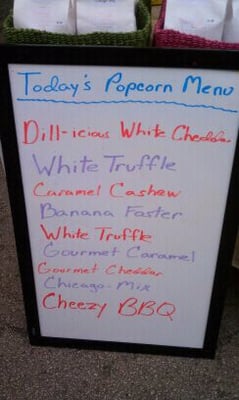 Today's Popcorn Menu
Dill-icious White Cheddar
White Truffle
Caramel Cashew
Banana Foster
White Truffle
Gourmet Caramel
Gourmet Cheddar
Chicago-Mix
Cheezy BBQ